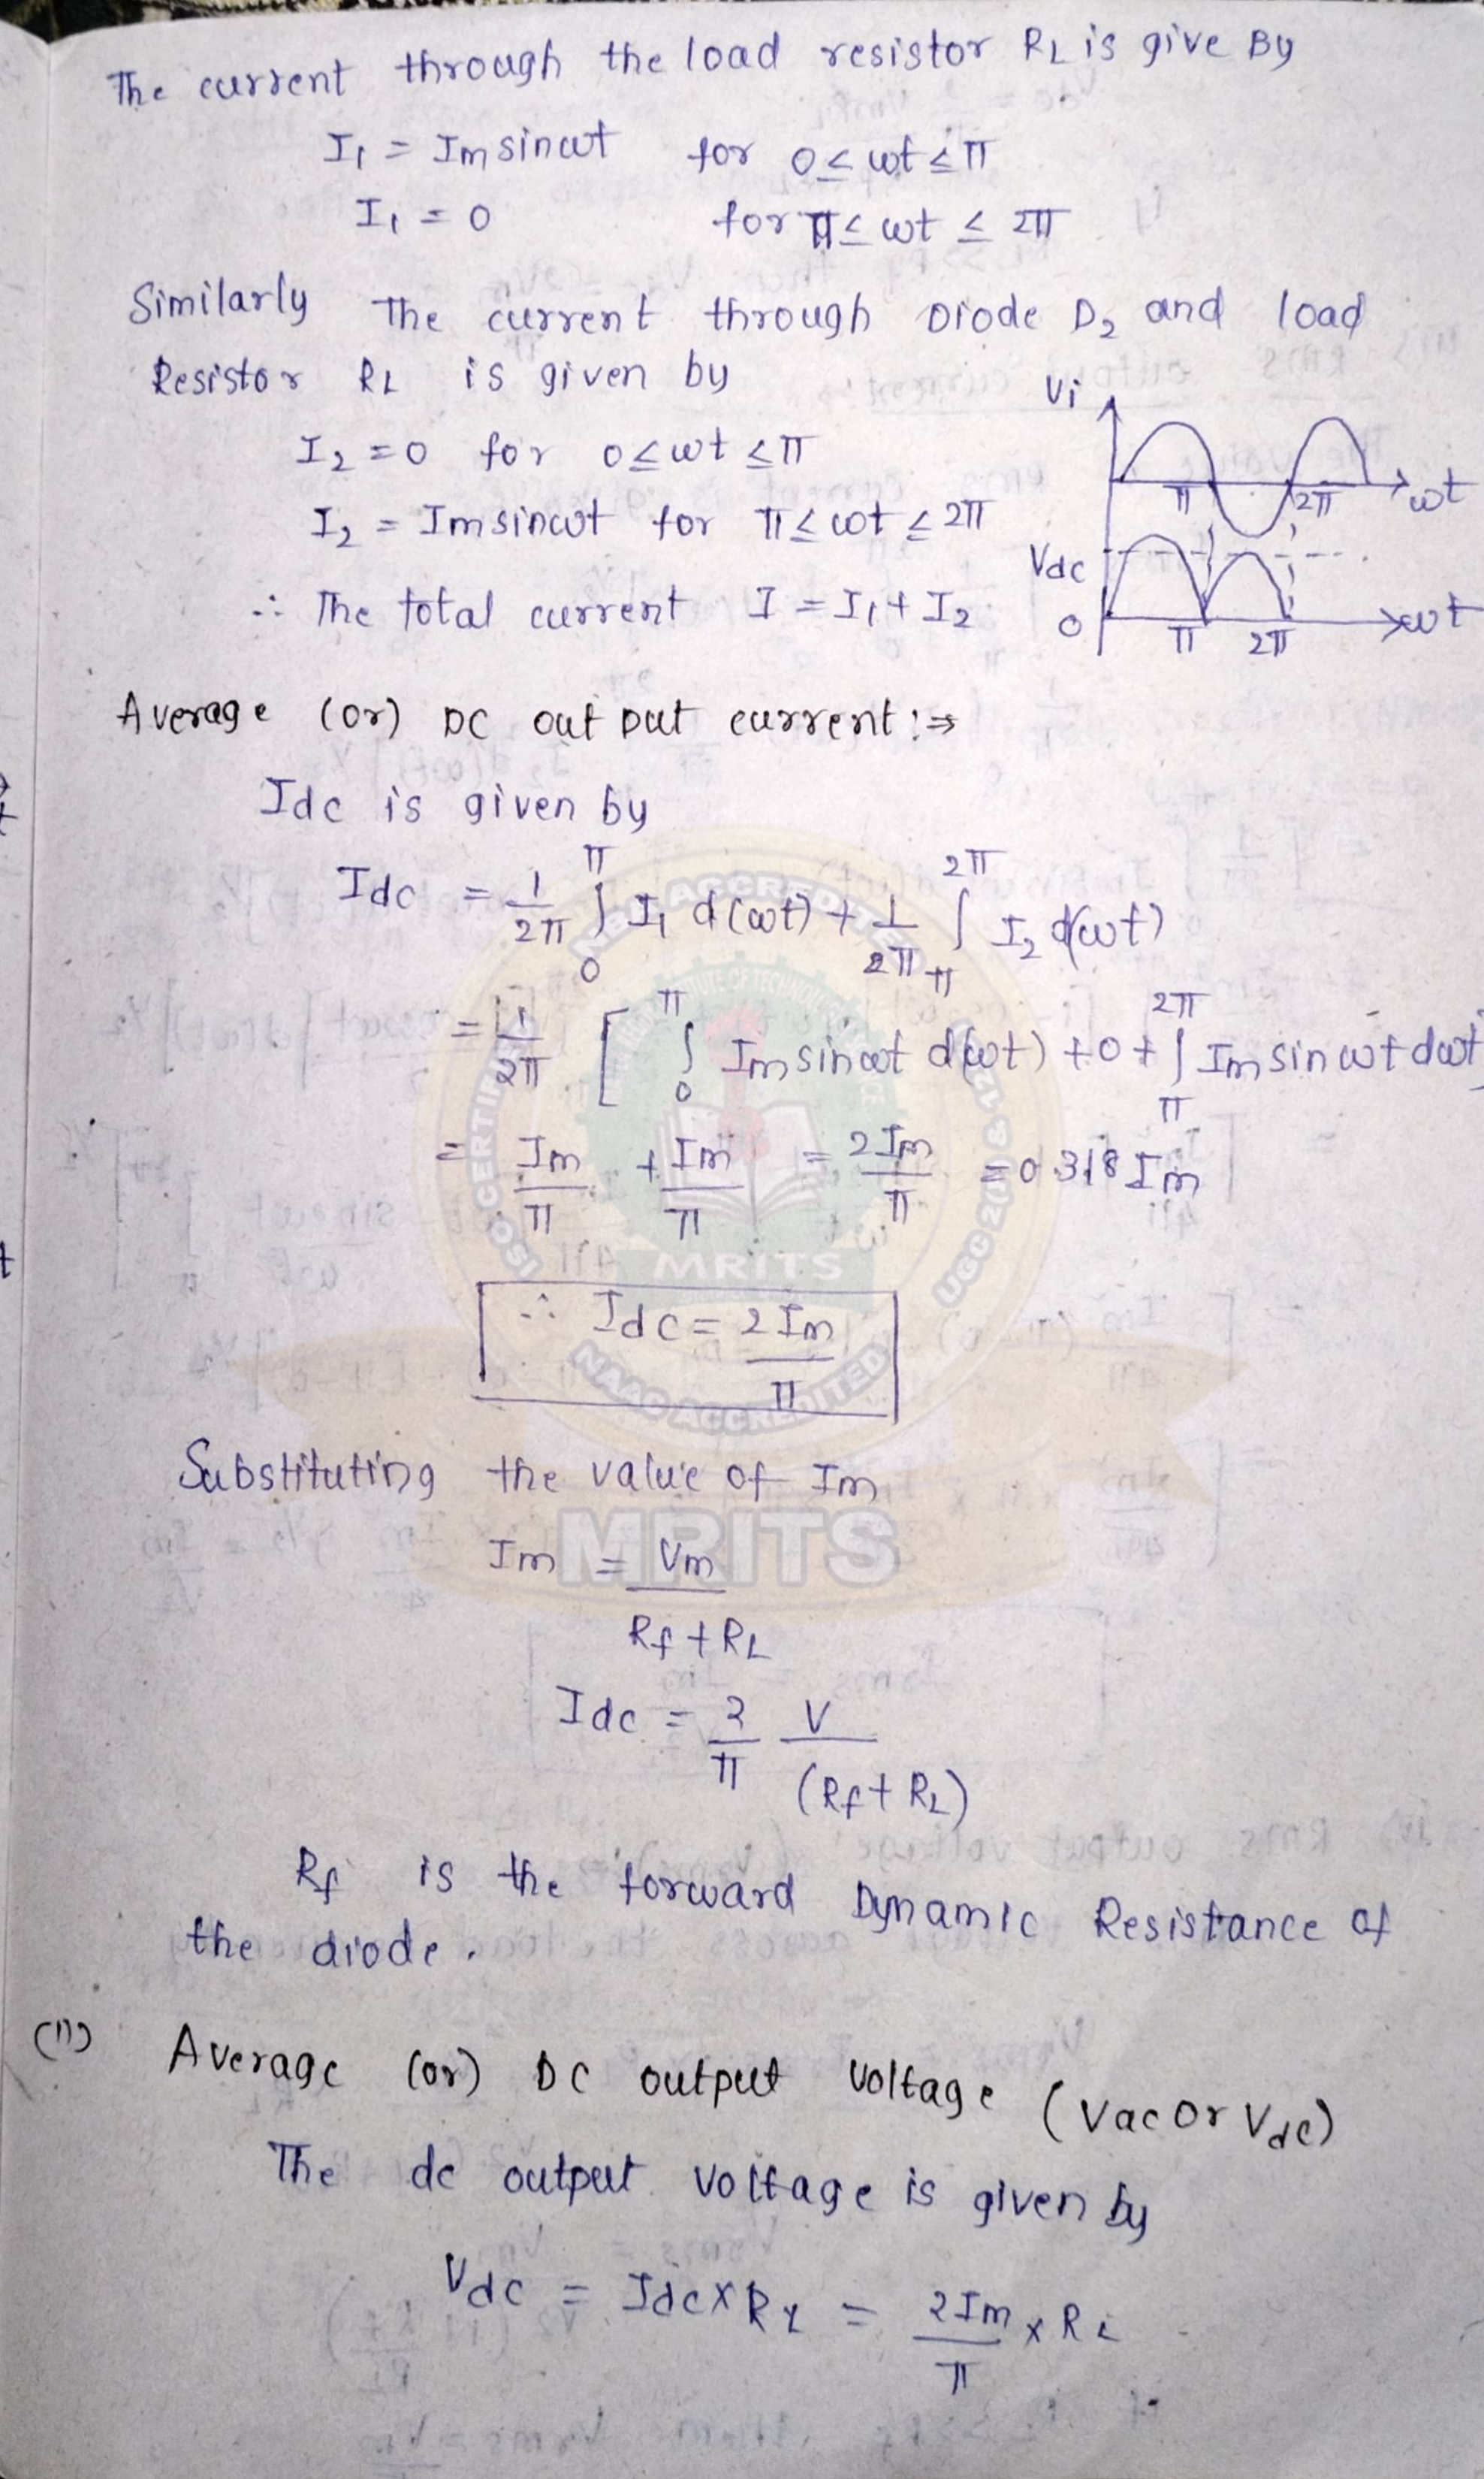 The current through the load resistor RL is give By
I1 = Im sinωt for 0 ≤ ωt ≤ π
I1 = 0 for π ≤ ωt ≤ 2π
Similarly The current through Diode D2 and load
Resistor RL is given by
I2 = 0 for 0 ≤ ωt ≤ π
I2 = Im sinωt for π ≤ ωt ≤ 2π
∴ The total current I = I1 + I2
Vi
π 2π ωt
Vdc
0 π 2π ωt
Average (or) DC out put current :⇒
Idc is given by
Idc = 1/2π ∫0^π I1 d(ωt) + 1/2π ∫π^2π I2 d(ωt)
= 1/2π [ ∫0^π Im sinωt d(ωt) + 0 + ∫π^2π Im sin ωt dωt
= Im/π + Im/π = 2Im/π = 0.318 Im
∴ Idc = 2Im/π
Substituting the value of Im
Im = Vm/Rf + RL
Idc = 2/π V/(Rf + RL)
Rf is the forward Dynamic Resistance of
the diode.
(ii) Average (or) DC output Voltage (Vac or Vdc)
The dc output voltage is given by
Vdc = Idc × RL = 2Im/π × RL
NAAC ACCREDITED
UGC 2(f) &
MRITS
MRITS